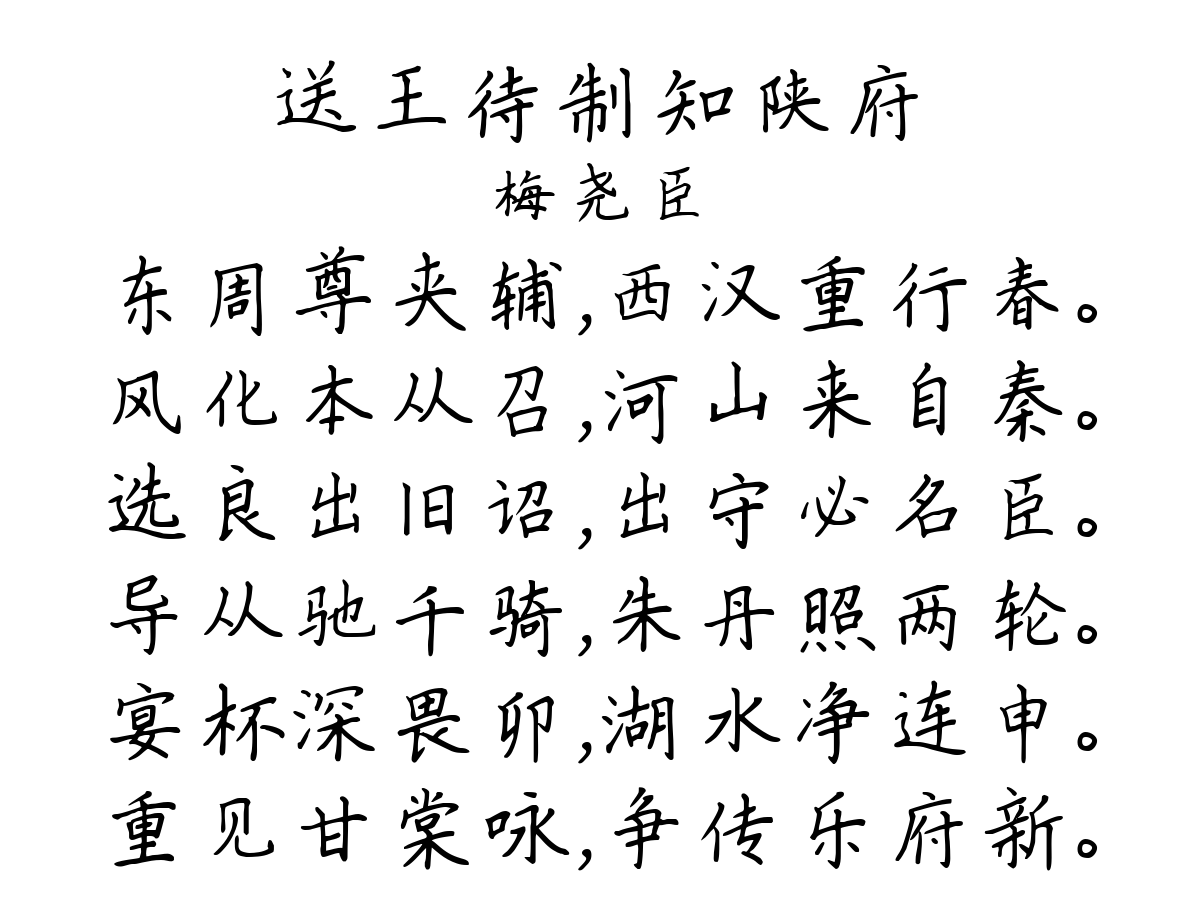 送王待制知陕府
梅尧臣
东周尊夹辅,西汉重行春。
风化本从召,河山来自秦。
选良出旧诏,出守必名臣。
导从驰千骑,朱丹照两轮。
宴杯深畏卯,湖水净连申。
重见甘棠咏,争传乐府新。